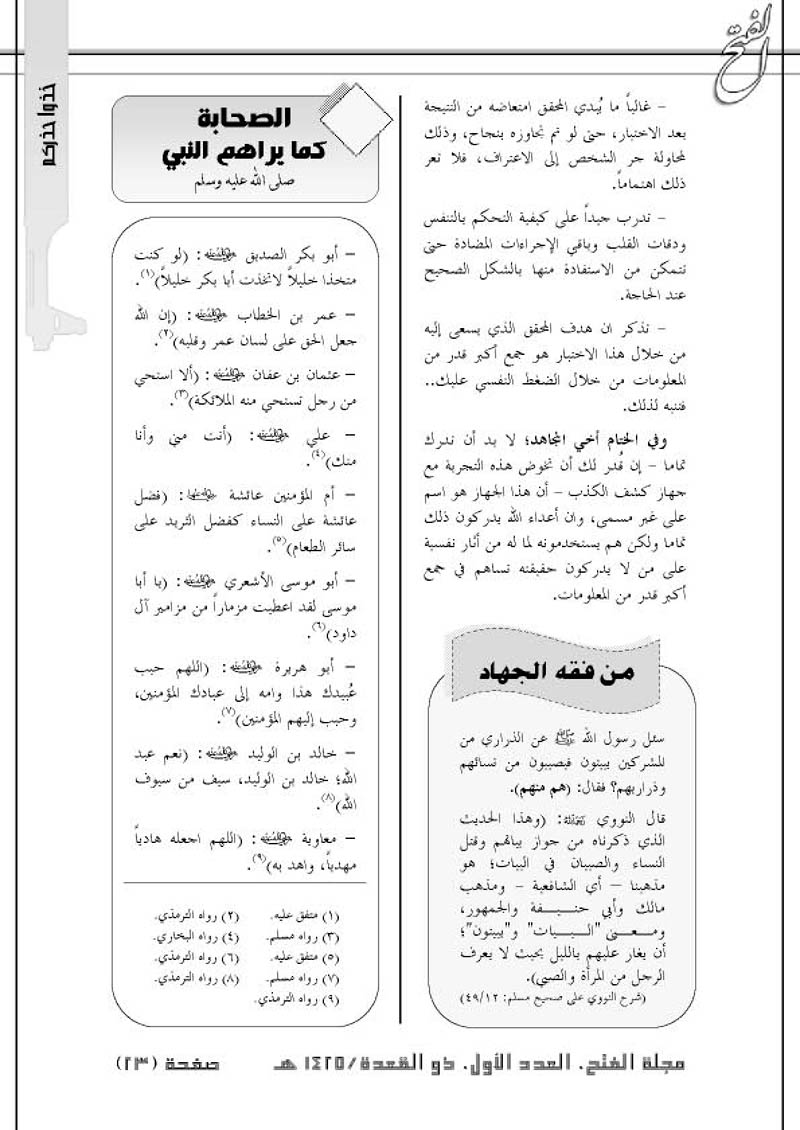 الفتح
خذوا حذركم
– غالباً ما يُبدي المحقق امتعاضه من النتيجة
بعد الاختبار، حتى لو تم تجاوزه بنجاح، وذلك
لمحاولة جر الشخص إلى الاعتراف، فلا تعر
ذلك اهتماماً.
– تدرب جيداً على كيفية التحكم بالتنفس
ودقات القلب وباقي الإجراءات المضادة حتى
تتمكن من الاستفادة منها بالشكل الصحيح
عند الحاجة.
– تذكر ان هدف المحقق الذي يسعى إليه
من خلال هذا الاختبار هو جمع أكبر قدر من
المعلومات من خلال الضغط النفسي عليك..
فتنبه لذلك.
وفي الختام أخي المجاهد؛ لا بد أن تدرك
تماما – إن قُدر لك أن تخوض هذه التجربة مع
جهاز كشف الكذب – أن هذا الجهاز هو اسم
على غير مسمى، وان أعداء الله يدركون ذلك
تماما ولكن هم يستخدمونه لما له من أثار نفسية
على من لا يدركون حقيقته تساهم في جمع
أكبر قدر من المعلومات.
من فقه الجهاد
سئل رسول الله ﷺ عن الذراري من
للشركين يبيتون فيصيبون من نسائهم
وذراريهم؟ فقال: (هم منهم).
قال النووي رحمه الله: (وهذا الحديث
الذي ذكرناه من جواز بياتهم وقتل
النساء والصبيان في البيات؛ هو
مذهبنا – أي الشافعية - ومذهب
مالك وأبي حنيفة والجمهور،
ومعنى "البيات" و"يبيتون"؛
أن يغار عليهم بالليل بحيث لا يعرف
الرجل من المرأة والصبي).
(شرح النووي على صحيح مسلم: ٤٩/١٢)
الصحابة
كما يراهم النبي
صلى الله عليه وسلم
– أبو بكر الصديق رضي الله عنه: (لو كنت
متخذا خليلاً لاتخذت أبا بكر خليلاً)(١).
– عمر بن الخطاب رضي الله عنه: (إن الله
جعل الحق على لسان عمر وقلبه)(٢).
– عثمان بن عفان رضي الله عنه: (ألا استحي
من رجل تستحي منه الملائكة)(٣).
– علي رضي الله عنه: (أنت مني وأنا
منك)(٤).
– أم المؤمنين عائشة رضي الله عنها: (فضل
عائشة على النساء كفضل الثريد على
سائر الطعام)(٥).
– أبو موسى الأشعري رضي الله عنه: (يا أبا
موسى لقد اعطيت مزماراً من مزامير آل
داود)(٦).
– أبو هريرة رضي الله عنه: (اللهم حبب
عُبيدك هذا وامه إلى عبادك المؤمنين،
وحبب إليهم المؤمنين)(٧).
– خالد بن الوليد رضي الله عنه: (نعم عبد
الله؛ خالد بن الوليد، سيف من سيوف
الله)(٨).
– معاوية رضي الله عنه: (اللهم اجعله هادياً
مهدياً، واهد به)(٩).
(١) متفق عليه. (٢) رواه الترمذي.
(٣) رواه مسلم. (٤) رواه البخاري.
(٥) متفق عليه. (٦) رواه الترمذي.
(٧) رواه مسلم. (٨) رواه الترمذي.
(٩) رواه الترمذي.
مجلة الفتح. العدد الأول. ذو القعدة/١٤٢٥ هـ صفحة (٢٣)